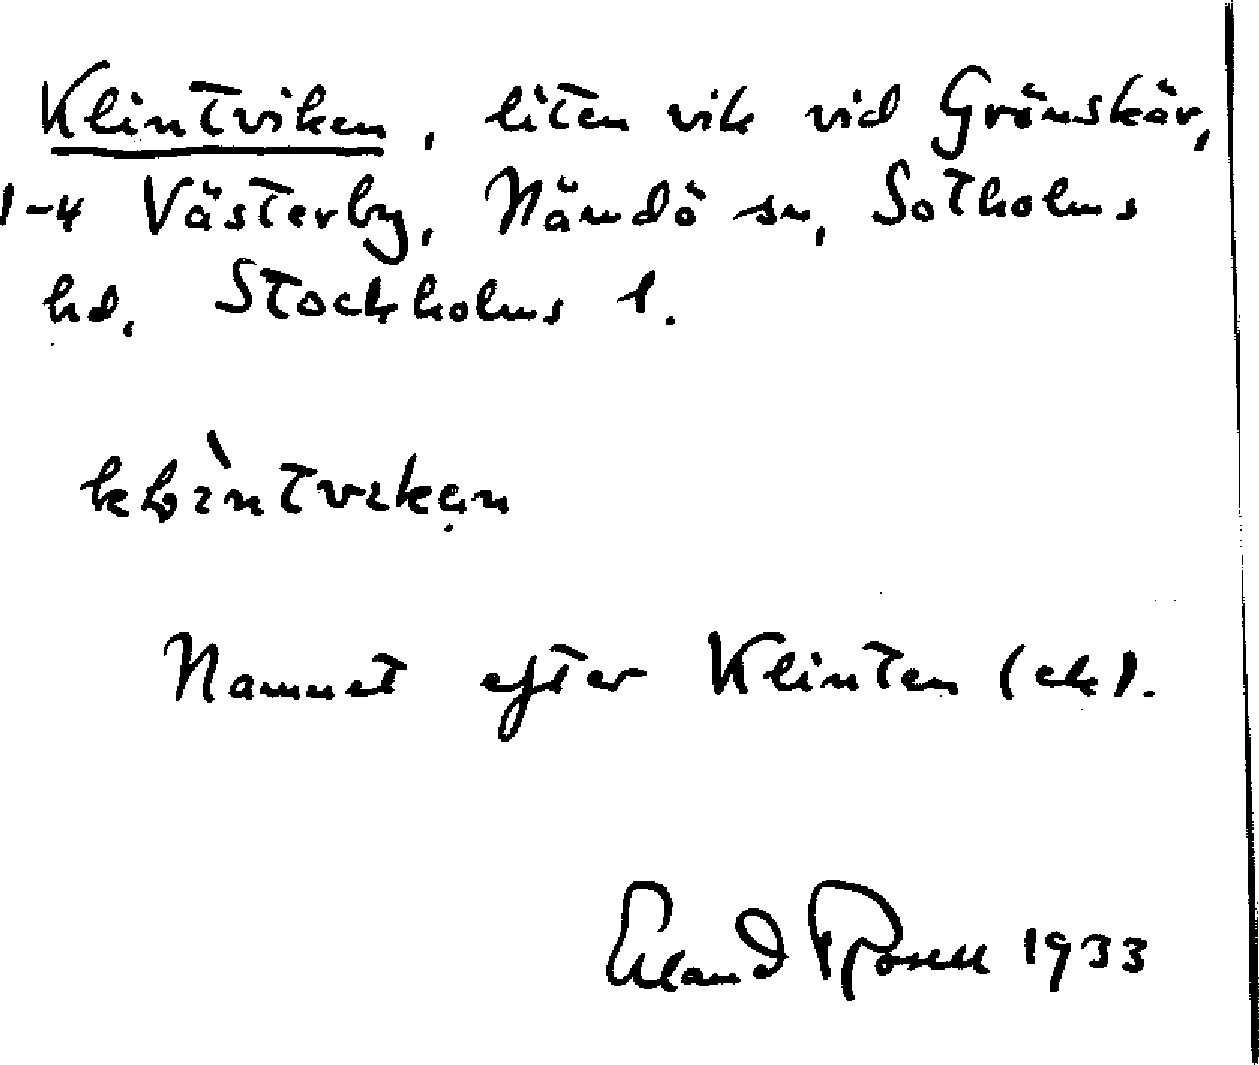 Klintviken, liten vik vid Gränskär,
1-4 Västerby, Nämdö sn, Sotholms
hd, Stockholms l.
Namnet efter Klinten (ek).
Erland Rosell 1933